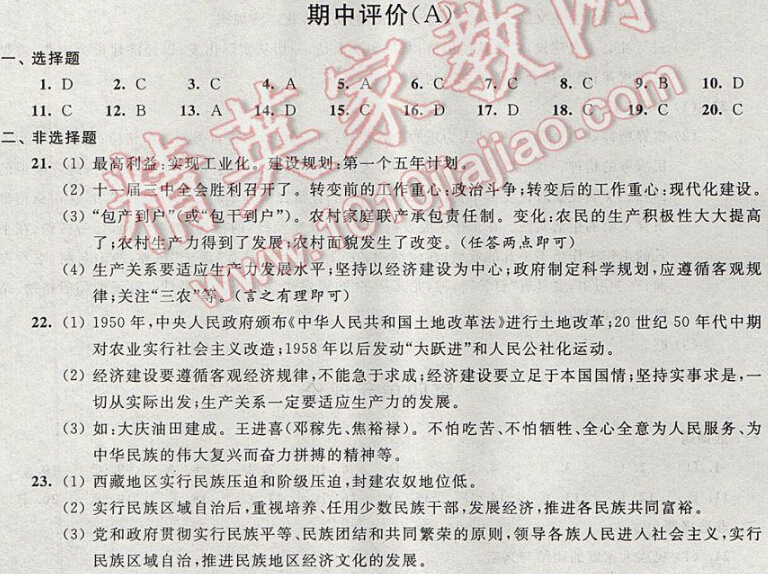 期中评价(A)
一、选择题
1. D 2. C 3. C 4. A 5. A 6. C 7. C 8. C 9. B 10. D
11. C 12. B 13. A 14. D 15. C 16. D 17. D 18. C 19. C 20. C
二、非选择题
21. (1) 最高利益:实现工业化。建设规划:第一个五年计划。
(2) 十一届三中全会胜利召开了。转变前的工作重心:政治斗争;转变后的工作重心:现代化建设。
(3) “包产到户”(或“包干到户”)。农村家庭联产承包责任制。变化:农民的生产积极性大大提高
了;农村生产力得到了发展;农村面貌发生了改变。(任答两点即可)
(4) 生产关系要适应生产力发展水平;坚持以经济建设为中心;政府制定科学规划,应遵循客观规
律;关注“三农”等。(言之有理即可)
22. (1) 1950年,中央人民政府颁布《中华人民共和国土地改革法》进行土地改革;20世纪50年代中期
对农业实行社会主义改造;1958年以后发动“大跃进”和人民公社化运动。
(2) 经济建设要遵循客观经济规律,不能急于求成;经济建设要立足于本国国情;坚持实事求是,一
切从实际出发;生产关系一定要适应生产力的发展。
(3) 如:大庆油田建成。王进喜(邓稼先、焦裕禄)。不怕吃苦、不怕牺牲、全心全意为人民服务、为
中华民族的伟大复兴而奋力拼搏的精神等。
23. (1) 西藏地区实行民族压迫和阶级压迫,封建农奴地位低。
(2) 实行民族区域自治后,重视培养、任用少数民族干部,发展经济,推进各民族共同富裕。
(3) 党和政府贯彻实行民族平等、民族团结和共同繁荣的原则,领导各族人民进入社会主义,实行
民族区域自治,推进民族地区经济文化的发展。
精英家教网
www.1010jiajiao.com